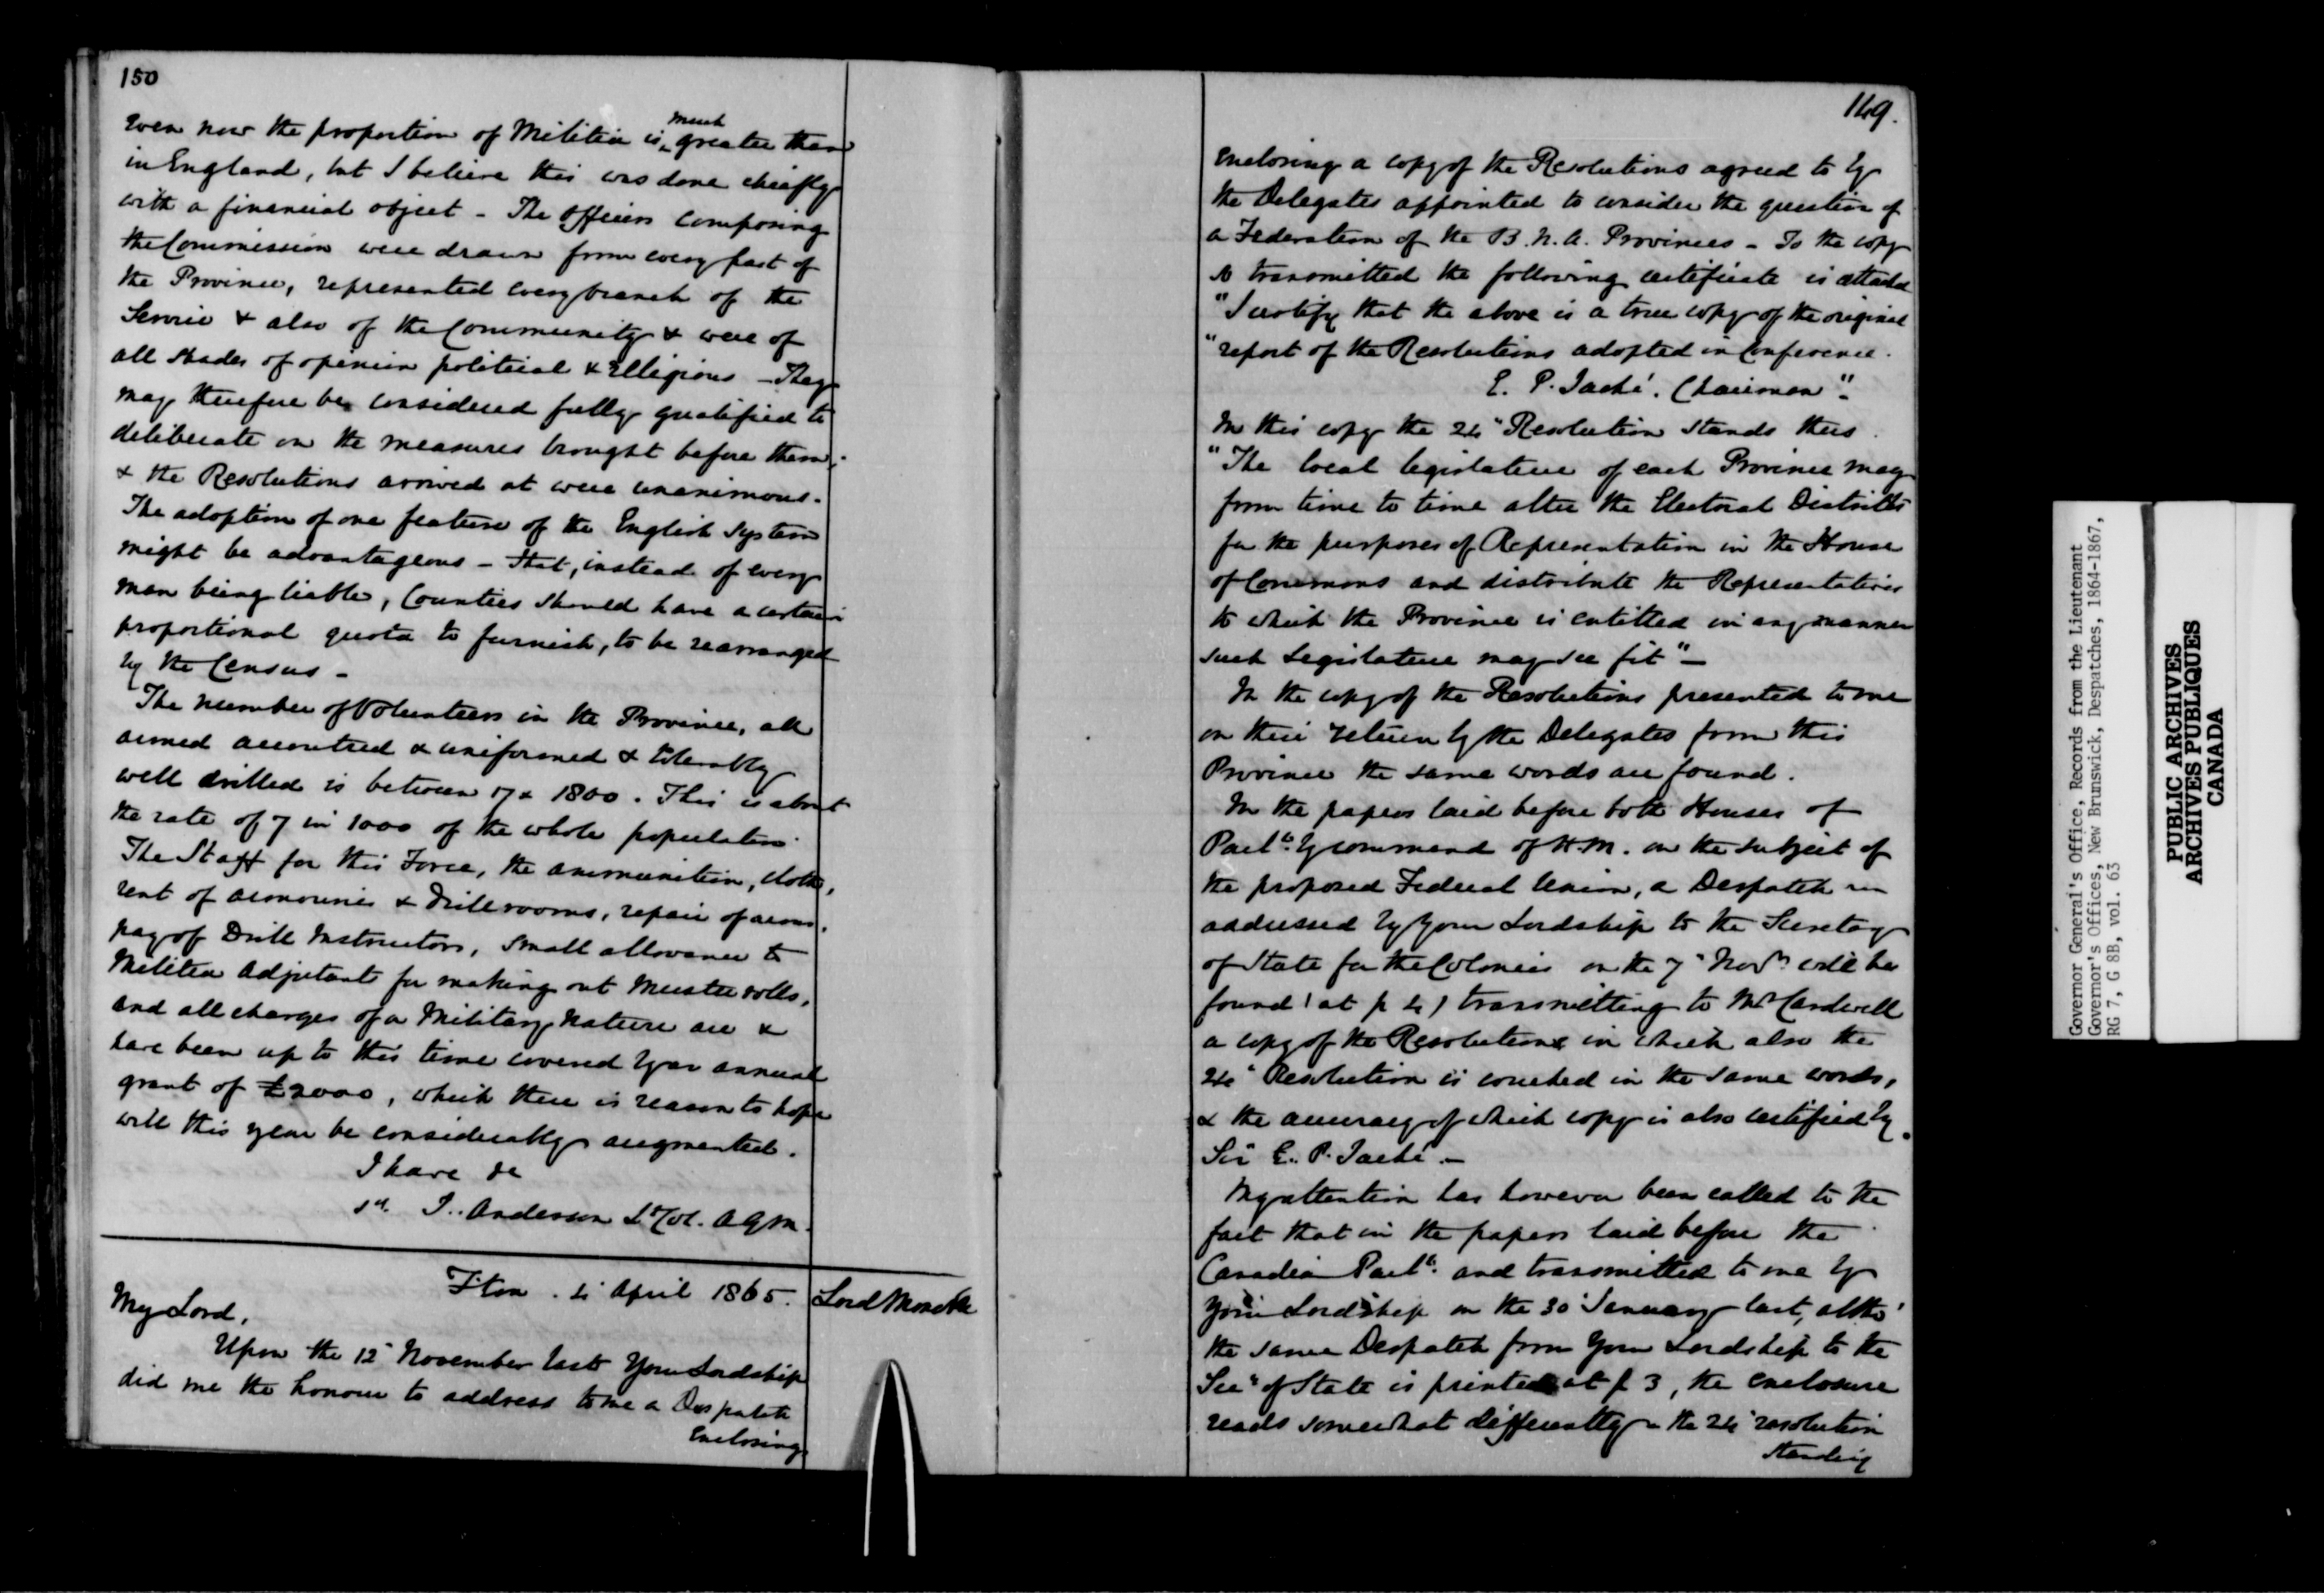 150
Even now the proportion of Militia is much greater than
in England, but I believe this was done chiefly
with a financial object - The Officers composing
the Commission were drawn from every part of
the Province, represented every branch of the
Service & also of the Community & were of
all shades of opinion political & religious - They
may therefore be considered fully qualified to
deliberate on the measures brought before them;
& the Resolutions arrived at were unanimous.
The adoption of one feature of the English system
might be advantageous - that, instead of every
man being liable, Counties should have a certain
proportional quota to furnish, to be rearranged
by the Census -
The number of Volunteers in the Province, all
armed accoutred & uniformed & tolerably
well drilled is between 17 & 1800. This is about
the rate of 7 in 1000 of the whole population.
The Staff for this Force, the ammunition,
rent of armouries & Drill rooms, repair of arms,
pay of Drill Instructors, small allowance to
Militia Adjutants for making out Muster rolls,
and all charges of a Military nature are &
have been up to this time covered by an annual
grant of £2000, which there is reason to hope
will this year be considerably augmented.
I have &c
sd. J. Anderson Lt Col. AGM.
F'ton. 4 April 1865.
Lord Monck
My Lord,
Upon the 12" November last Your Lordship
did me the honour to address to me a Despatch
Enclosing
149.
enclosing a copy of the Resolutions agreed to by
the Delegates appointed to consider the question of
a Federation of the B.N.A. Provinces - To the copy
so transmitted the following certificate is attached
"I certify that the above is a true copy of the original
"report of the Resolutions adopted in Conference.
E. P. Taché. Chairman".
In this copy the 24" Resolution stands thus.
"The local legislature of each Province may
from time to time alter the Electoral Districts
for the purposes of Representation in the House
of Commons and distribute the Representatives
to which the Province is entitled in any manner
such Legislature may see fit" -
In the copy of the Resolutions presented to me
on their return by the Delegates from this
Province the same words are found.
In the papers laid before both Houses of
Parlt. by command of H.M. on the subject of
the proposed Federal Union, a Despatch
addressed by Your Lordship to the Secretary
of State for the Colonies on the 7" Novr. will be
found (at p 4) transmitting to Mr Cardwell
a copy of the Resolutions in which also the
24" Resolution is couched in the same words,
& the accuracy of which copy is also certified by
Sir E. P. Taché. -
My attention has however been called to the
fact that in the papers laid before the
Canadian Parlt. and transmitted to me by
Your Lordship on the 30" January last, altho'
the same Despatch from Your Lordship to the
Secy of State is printed at p 3, the enclosure
reads somewhat differently - the 24" resolution
standing
Governor General's Office, Records from the Lieutenant
Governor's Offices, New Brunswick, Despatches, 1864-1867,
RG 7, G 8B, vol. 63
PUBLIC ARCHIVES
ARCHIVES PUBLIQUES
CANADA